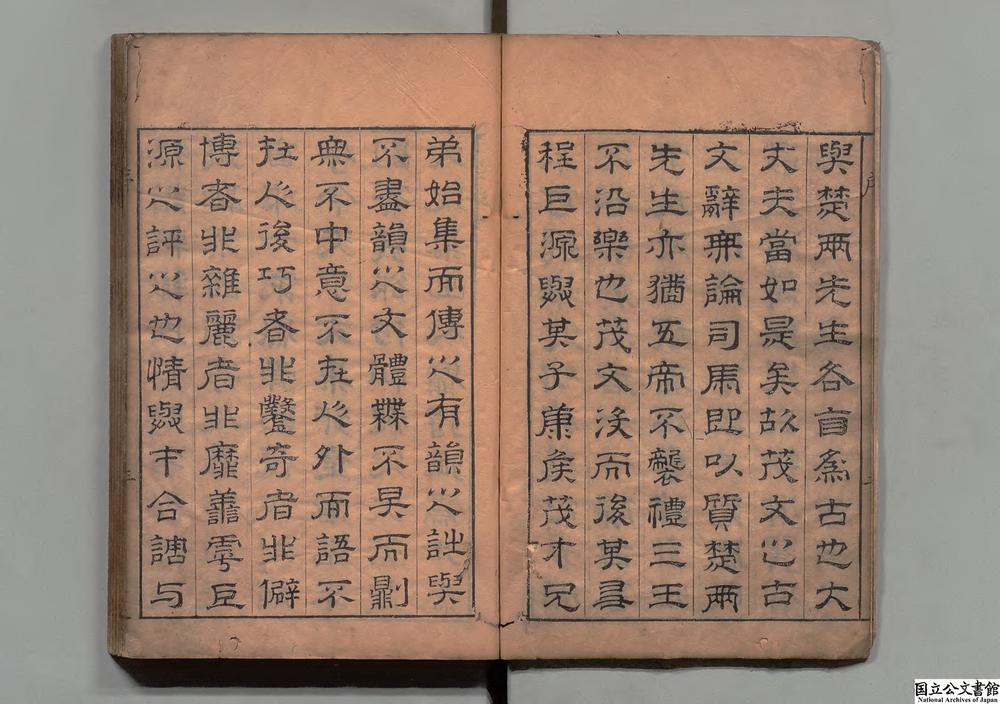 與楚兩先生各自爲古也大
丈夫當如是矣故茂文之古
文辭無論司馬卽以質楚兩
先生亦猶五帝不襲禮三王
不沿樂也茂文沒而後其
程巨源與其子康侯茂才兄
弟始集而傳之有韻之詩與
不盡韻之文體不而
無不中意不在人外而語不
在人後巧者非鑿奇者非僻
博者非雜麗者非靡善乎巨
源之評之也情與才合調与
国立公文書館
National Archives of Japan